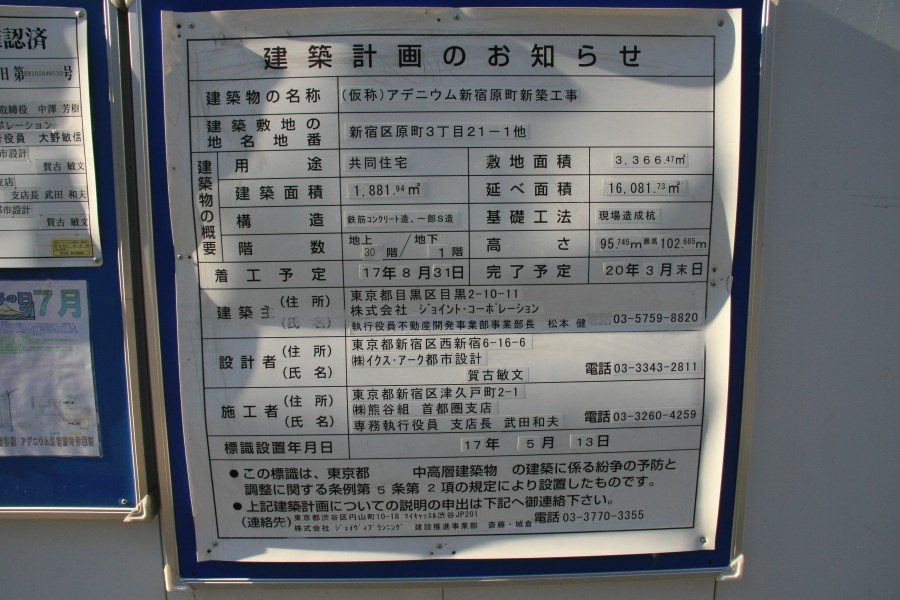 認済
第 号
取締役 中澤 芳樹
ポレーション
行役員 大野敏信
市設計
賀古 敏文
支店
支店長 武田 和夫
市設計
賀古 敏文
7月
建築計画のお知らせ
建築物の名称 (仮称)アデニウム新宿原町新築工事
建築敷地の地名地番 新宿区原町3丁目21-1他
建築物の概要
用途 共同住宅 敷地面積 3,366.47㎡
建築面積 1,881.94㎡ 延べ面積 16,081.73㎡
構造 鉄筋コンクリート造、一部S造 基礎工法 現場造成杭
階数 地上30階/地下1階 高さ 95.745m最高102.685m
着工予定 17年8月31日 完了予定 20年3月末日
建築主 (住所) 東京都目黒区目黒2-10-11
(氏名) 株式会社 ジョイント・コーポレーション
執行役員不動産開発事業部事業部長 松本 健 03-5759-8820
設計者 (住所) 東京都新宿区西新宿6-16-6
(氏名) ㈱イクス・アーク都市設計
賀古敏文 電話03-3343-2811
施工者 (住所) 東京都新宿区津久戸町2-1
(氏名) ㈱熊谷組 首都圏支店
専務執行役員 支店長 武田和夫 電話03-3260-4259
標識設置年月日 17年 5月 13日
●この標識は、東京都 中高層建築物 の建築に係る紛争の予防と
調整に関する条例第5条第2項の規定により設置したものです。
●上記建築計画についての説明の申出は下記へ御連絡下さい。
(連絡先) 東京都渋谷区円山町10-18 マイキャッスル渋谷JP201 電話 03-3770-3355
株式会社 ジェイヴィプランニング 建設推進事業部 斎藤・城倉